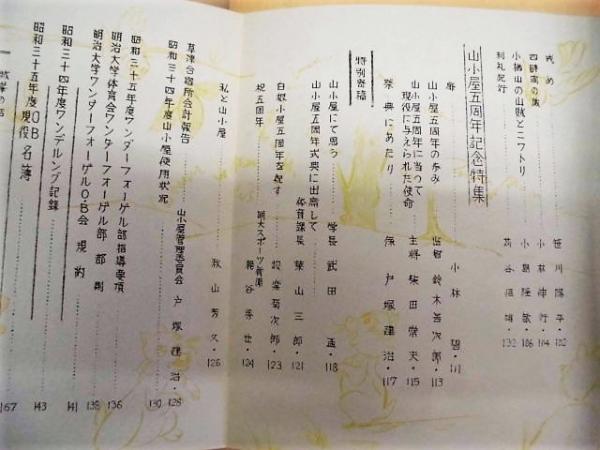 戎め 笹川陽平・102
四阿高の風 小林伸行・104
小楢山の山賊とニワトリ 小島隆敏・106
利尻紀行 苅谷恒明・132
山小屋五周年記念特集
序 小林 碧・111
山小屋五周年の歩み 監督 鈴木善次郎・113
山小屋五周年に当って
現役に与えられた使命 主将 柴田常夫・115
祭典にあたり 保戸塚建治・117
特別寄稿
山小屋にて思う 学長 武田 孟・118
山小屋五周年式典に出席して
体育課長 葉山三郎・121
白根小屋五周年を祝す 奴賀菊次郎・123
祝五周年 明大スポーツ新聞
糟谷秀世・124
私と山小屋 秋山芳久・126
草津合宿所会計報告
山小屋管理委員会 戸塚建治・128
昭和三十四年度山小屋使用状況 130
昭和三十五年度ワンダーフォーゲル部指導要項
明治大学体育会ワンダーフォーゲル部部則 136
明治大学ワンダーフォーゲルO・B会規約 138
昭和三十四年度ワンデルング記録 141
昭和三十五年度OB現役名簿 143
167